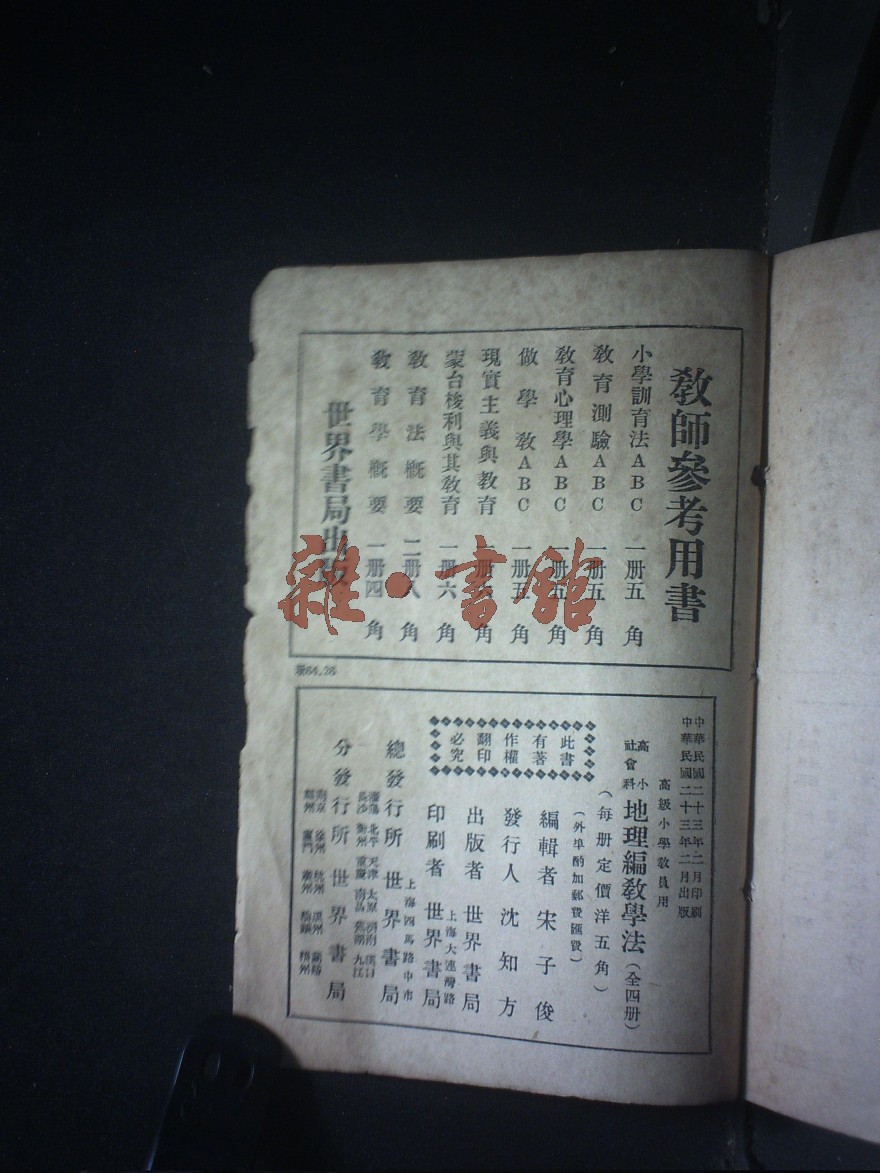 教師參考用書
小學訓育法ABC 一册五角
教育測驗ABC 一册五角
教育心理學ABC 一册五角
做學教ABC 一册五角
現實主義與教育 一册六角
蒙台梭利與其教育 一册六角
教育法概要 二册八角
教育學概要 一册四角
世界書局出版
雜·書館
中華民國二十三年二月印刷
中華民國二十三年二月出版
高級小學教員用
高小社會科 地理編教學法(全四册)
(每册定價洋五角)
(外埠酌加郵費匯費)
此書
有著
作權
翻印
必究
編輯者 宋子俊
發行人 沈知方
出版者 世界書局
上海大連灣路
印刷者 世界書局
上海四馬路中市
總發行所 世界書局
瀋陽 北平 天津 太原 濟南 漢口
長沙 衡州 重慶 南昌 蕪湖 九江
分發行所 世界書局
南京 徐州 杭州